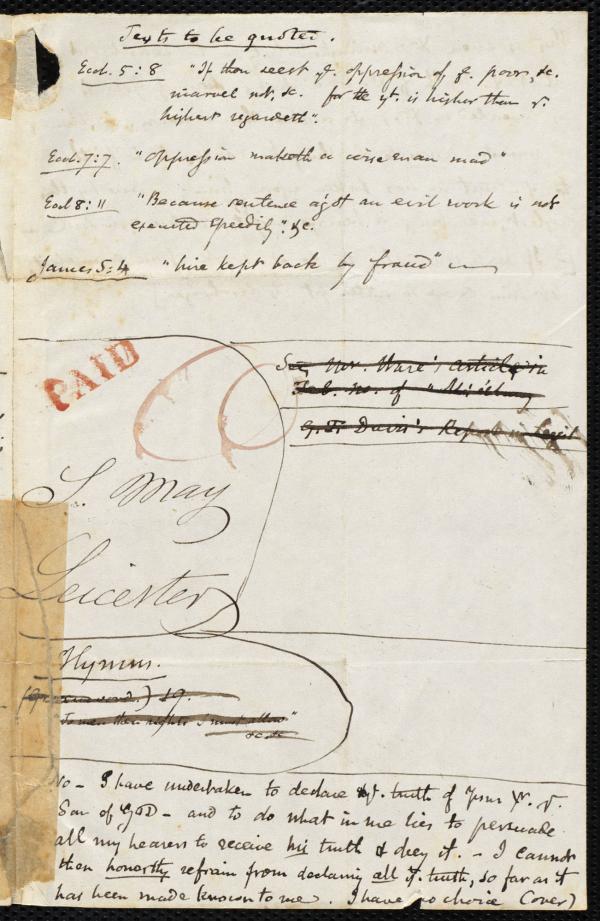 Texts to be quoted.
Eccl. 5:8 "If thou seest ye. oppression of ye. poor, &c.
marvel not, &c. for He yt. is higher than ye.
highest regardeth".
Eccl. 7:7. "Oppression maketh a wise man mad"
Eccl 8:11 "Because sentence agst an evil work is not
executed speedily" &c.
James 5:4 "hire kept back by fraud"
PAID
See Mr. Ware's article in
Feb. no. of "
G. T. Davis's Report in Legisl
S. May
Leicester
Hymns.
19.
To men their rights I must allow"
&c &c
No - I have undertaken to declare ye. truth of Jesus Xt. ye.
Son of GOD - and to do what in me lies to persuade
all my hearers to receive his truth & obey it. - I cannot
then honestly refrain from declaring all ye. truth, so far as it
has been made known to me. I have no choice (over)